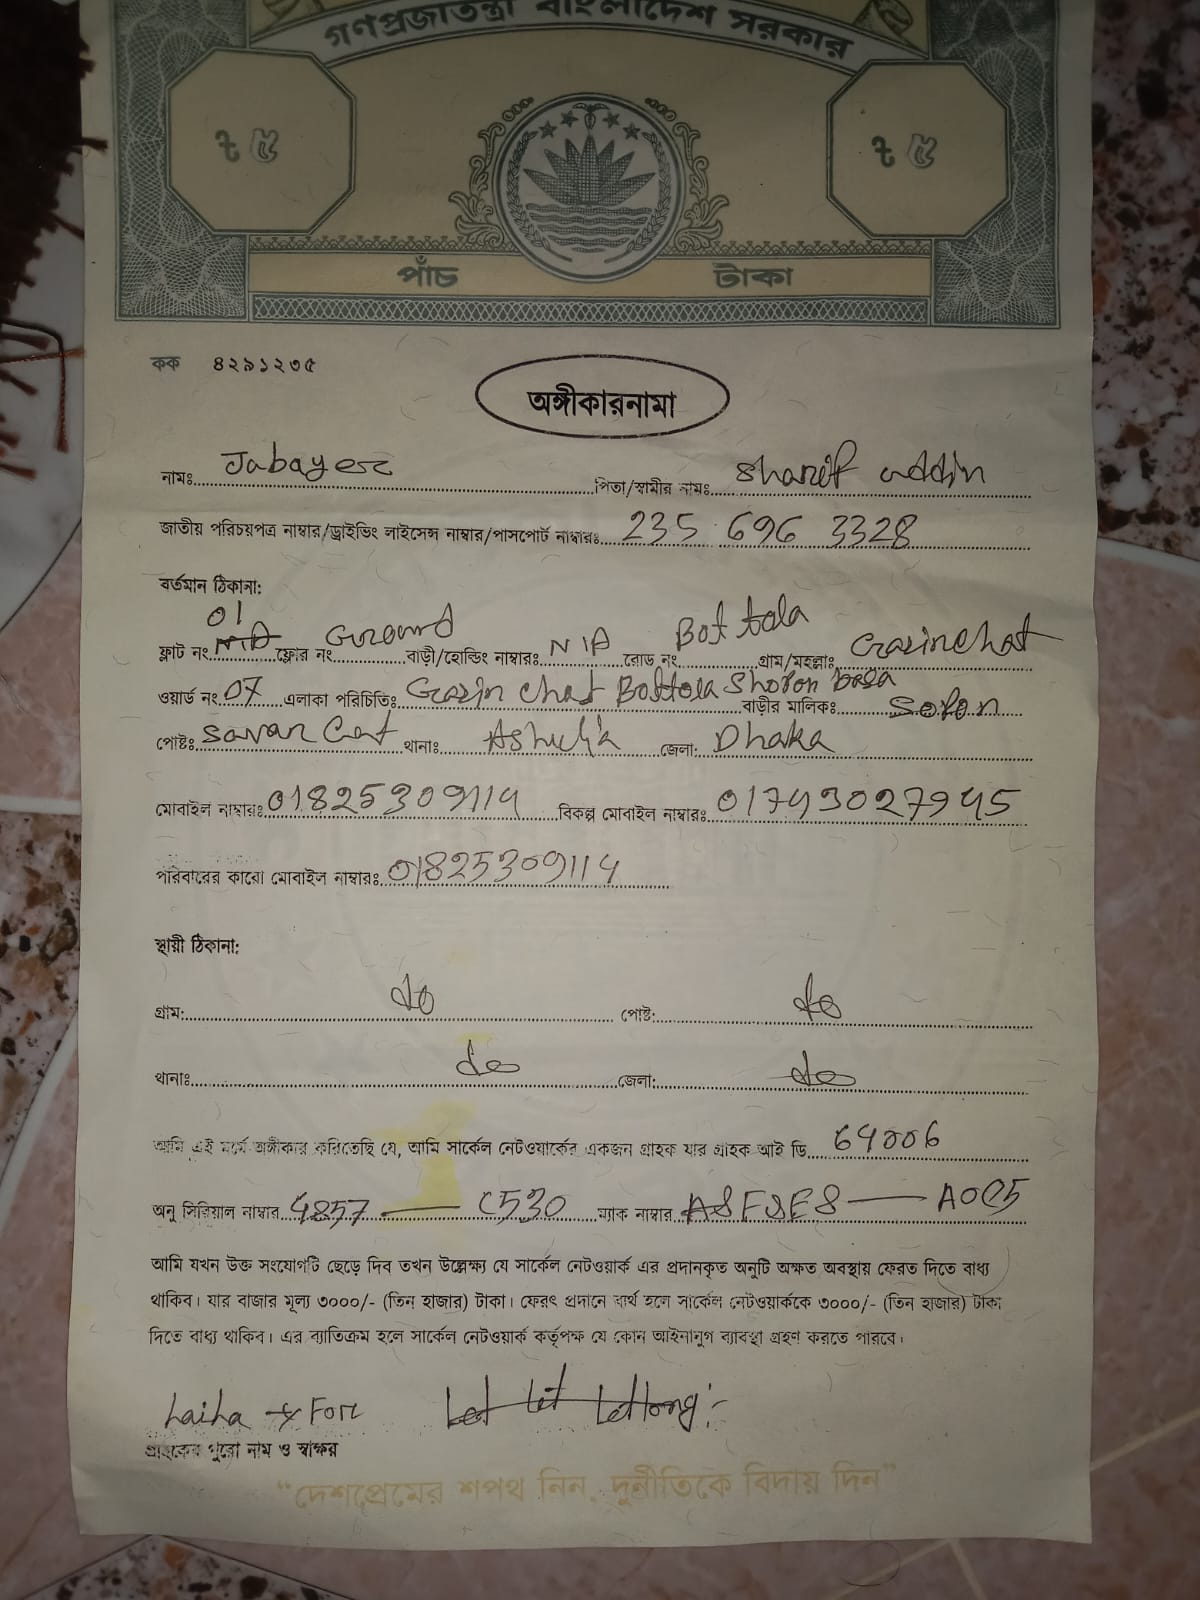 গণপ্রজাতন্ত্রী বাংলাদেশ সরকার
৳ ৫ ৳ ৫
পাঁচ টাকা
কক ৪২৯১২৩৫
অঙ্গীকারনামা
নামঃ Jabayer পিতা/স্বামীর নামঃ Sharif uddin
জাতীয় পরিচয়পত্র নাম্বার/ড্রাইভিং লাইসেন্স নাম্বার/পাসপোর্ট নাম্বারঃ 235 696 3328
বর্তমান ঠিকানা:
ফ্লাট নং 01 ফ্লোর নং Ground বাড়ী/হোল্ডিং নাম্বারঃ N/A রোড নং Bot tola গ্রাম/মহল্লাঃ Gazirchat
ওয়ার্ড নং 07 এলাকা পরিচিতিঃ Gazir chat Bottola Shopon basa বাড়ীর মালিকঃ Sopon
পোষ্টঃ Savar Cant থানাঃ Ashulia জেলা: Dhaka
মোবাইল নাম্বারঃ 01825309114 বিকল্প মোবাইল নাম্বারঃ 01743027945
পরিবারের কারো মোবাইল নাম্বারঃ 01825309114
স্থায়ী ঠিকানা:
গ্রাম: do পোষ্ট: do
থানাঃ do জেলা: do
আমি এই মর্মে অঙ্গীকার করিতেছি যে, আমি সার্কেল নেটওয়ার্কের একজন গ্রাহক যার গ্রাহক আই ডি 64006
অনু সিরিয়াল নাম্বার 4857 — C530 ম্যাক নাম্বার A8F8E8 — A0C5
আমি যখন উক্ত সংযোগটি ছেড়ে দিব তখন উল্লেক্ষ্য যে সার্কেল নেটওয়ার্ক এর প্রদানকৃত অনুটি অক্ষত অবস্থায় ফেরত দিতে বাধ্য
থাকিব। যার বাজার মূল্য ৩০০০/- (তিন হাজার) টাকা। ফেরৎ প্রদানে ব্যর্থ হলে সার্কেল নেটওয়ার্ককে ৩০০০/- (তিন হাজার) টাকা
দিতে বাধ্য থাকিব। এর ব্যাতিক্রম হলে সার্কেল নেটওয়ার্ক কর্তৃপক্ষ যে কোন আইনানুগ ব্যাবস্থা গ্রহণ করতে পারবে।
গ্রাহকের পুরো নাম ও স্বাক্ষর
"দেশপ্রেমের শপথ নিন, দুর্নীতিকে বিদায় দিন"